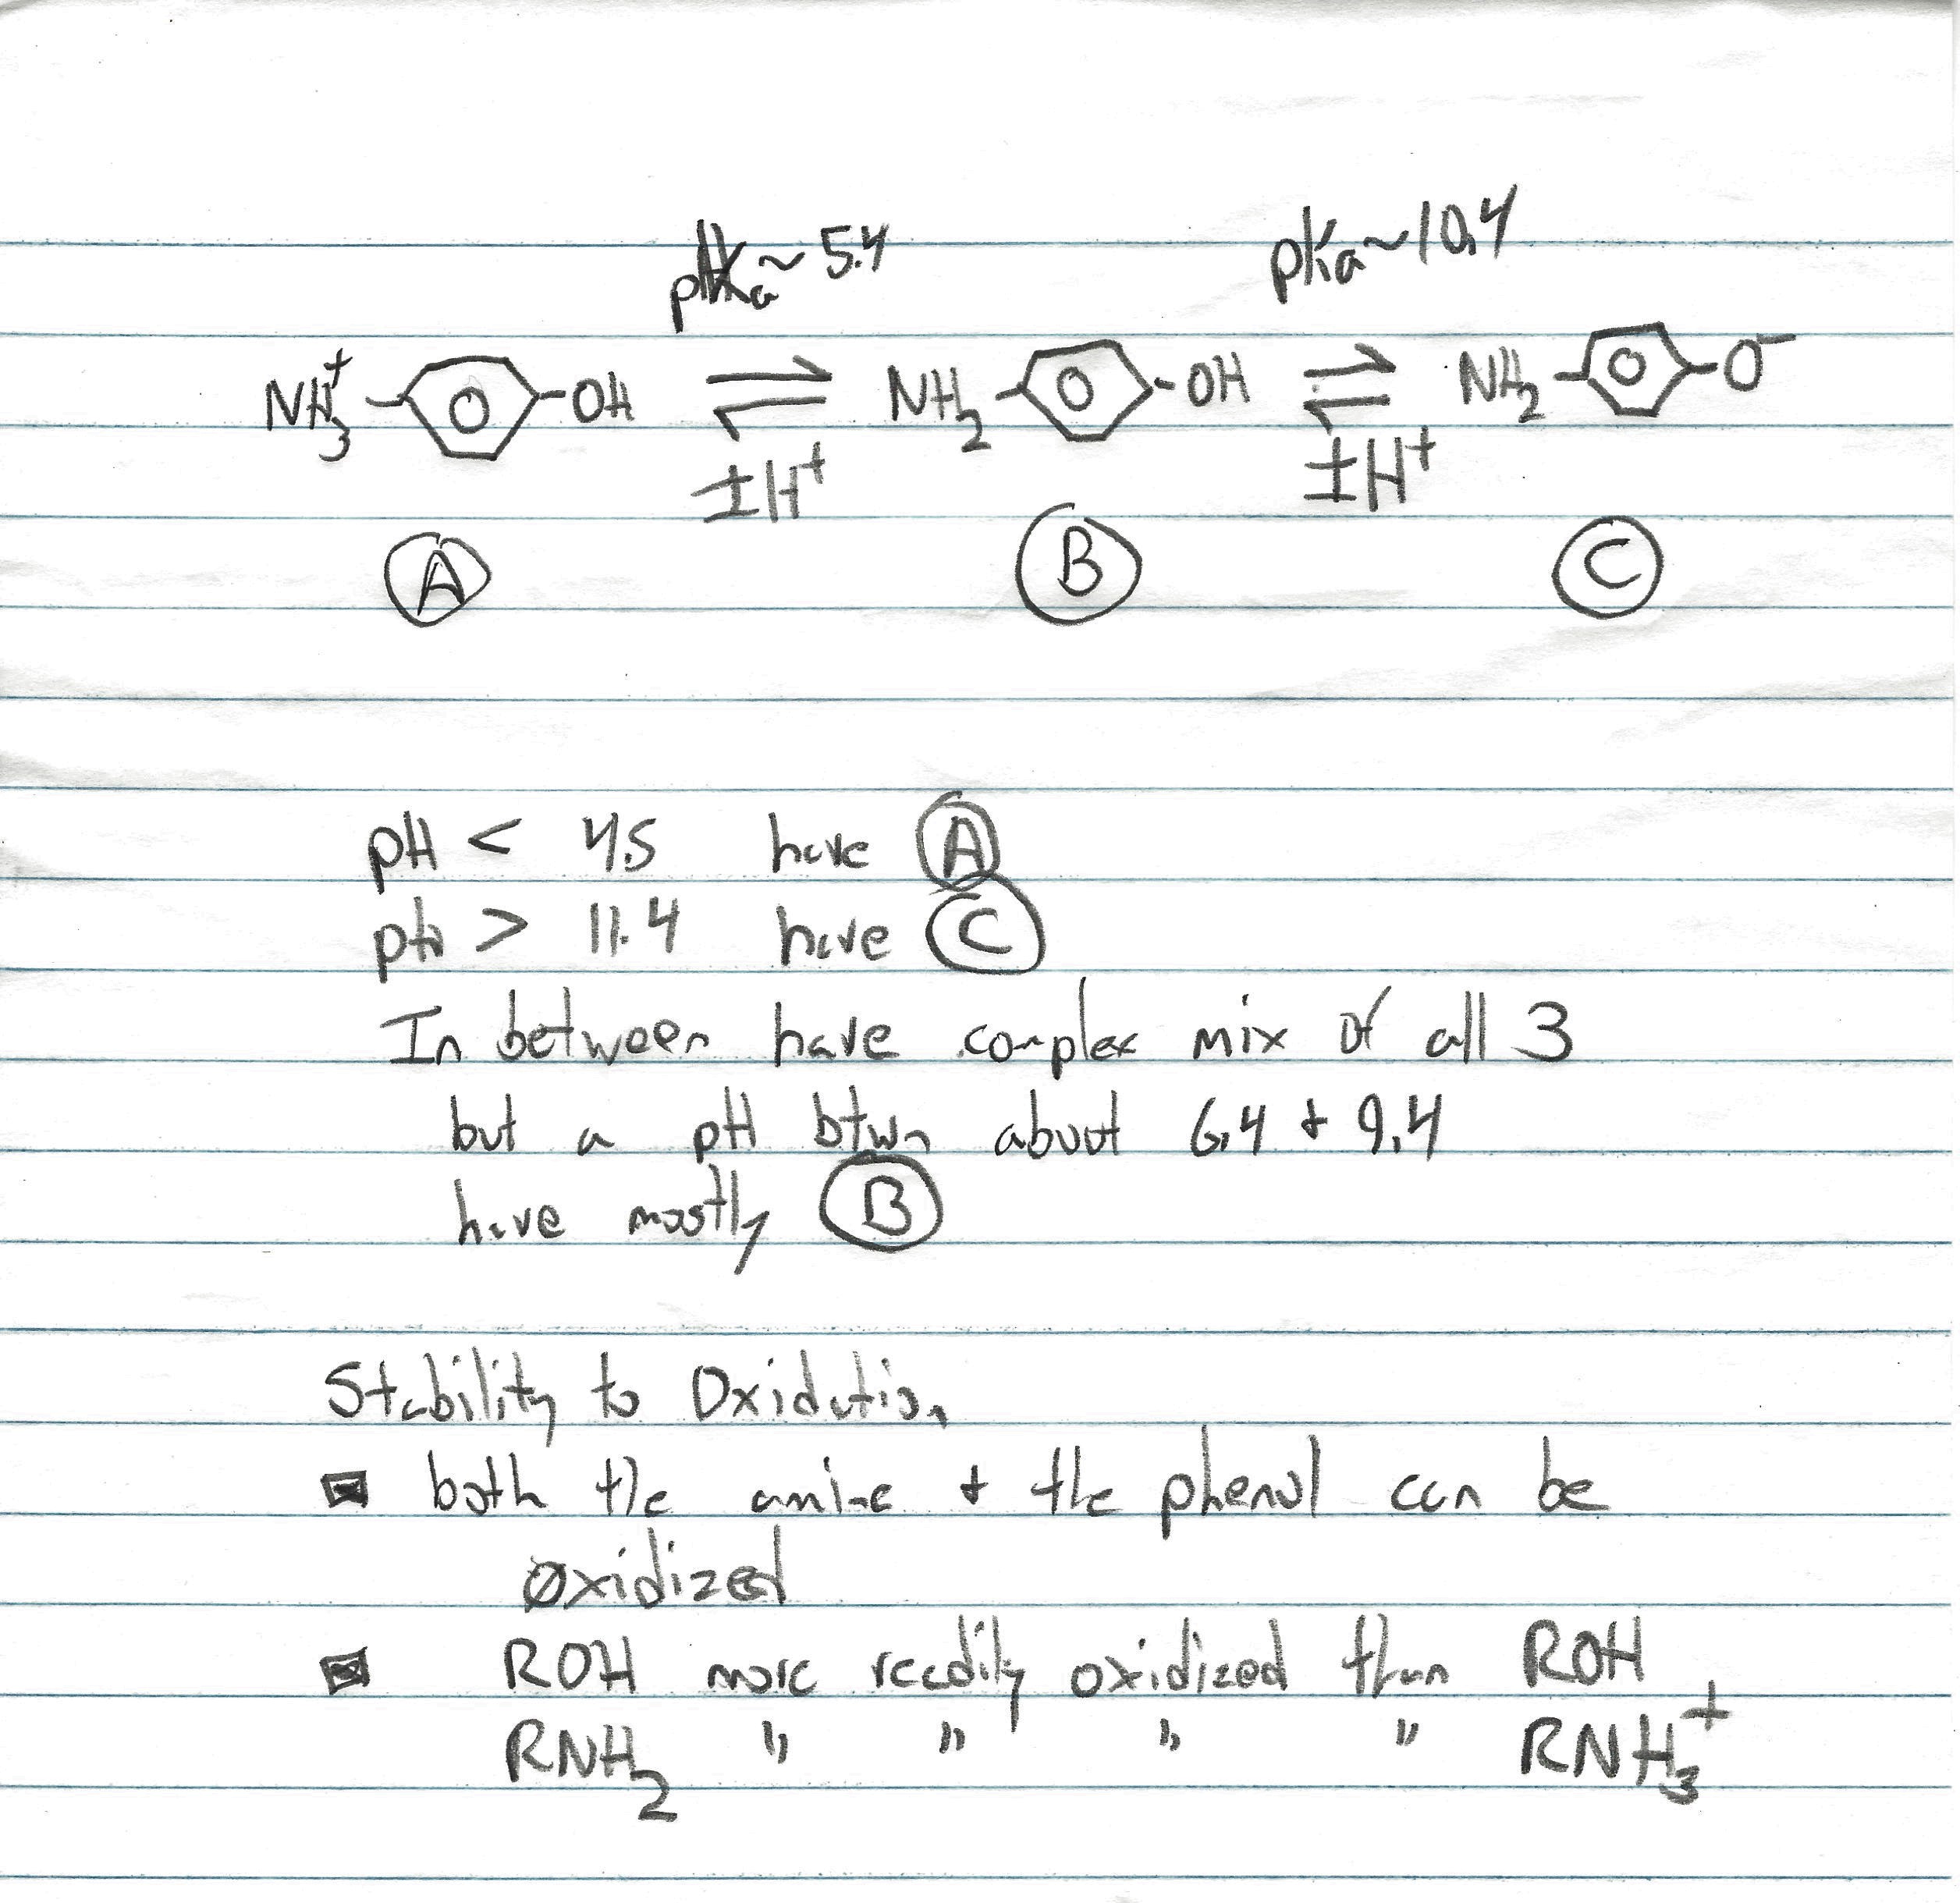 pKa ~ 5.4 pKa ~ 10.4
NH3+ - OH ⇌ NH2 - OH ⇌ NH2 - O-
±H+ ±H+
A B C
pH < 4.5 have A
pH > 11.4 have C
In between have complex mix of all 3
but a pH btwn about 6.4 + 9.4
have mostly B
Stability to Oxidation
both the amine + the phenol can be
oxidized
ROH more readily oxidized than ROH
RNH2 " " " " RNH3+